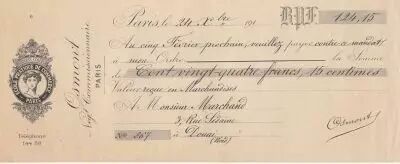 Paris, le 24 Xbre 191
B.P.F. 124,15
Au cinq Février prochain, veuillez payer contre ce mandat,
à mon Ordre la Somme
de Cent vingt quatre francs, 15 centimes
Valeur reçue en Marchandises
A Monsieur Marchand
3, Rue
No 367 à Douai
(Nord)
Osmont
Osmont
Négt Commissionnaire
PARIS
PARIS
Téléphone